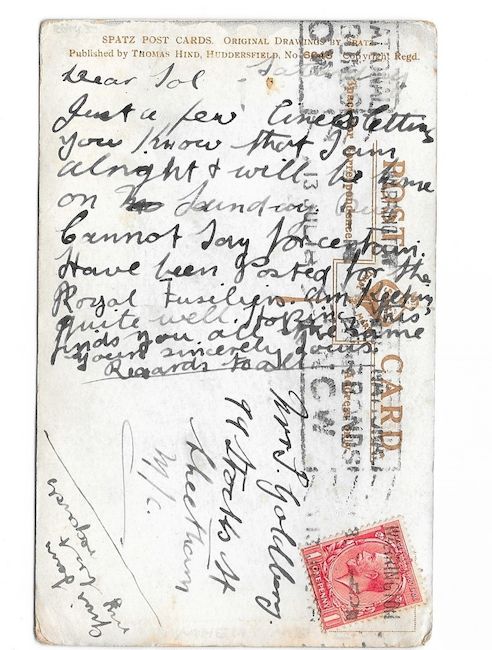 SPATZ POST CARDS. ORIGINAL DRAWINGS BY SPATZ.
Published by THOMAS HIND, HUDDERSFIELD, No 6643 Copyright Regd.
Dear Sol Saturday
Just a few lines letting
you know that I am
alright & will be home
on Sunday but
Cannot say for certain
Have been posted for the
Royal Fusiliers am keeping
quite well. Hoping this
finds you all the same
yours sincerely Louis
Regards to all
POST CARD
Mrs S. Goldberg.
99 Stocks St
Cheetham
M/c.
my best
regards
ONE PENNY